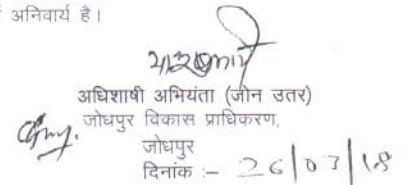 अनिवार्य है।
अधिशाषी अभियंता (जोन उतर)
जोधपुर विकास प्राधिकरण,
जोधपुर
दिनांक :- 26/03/18